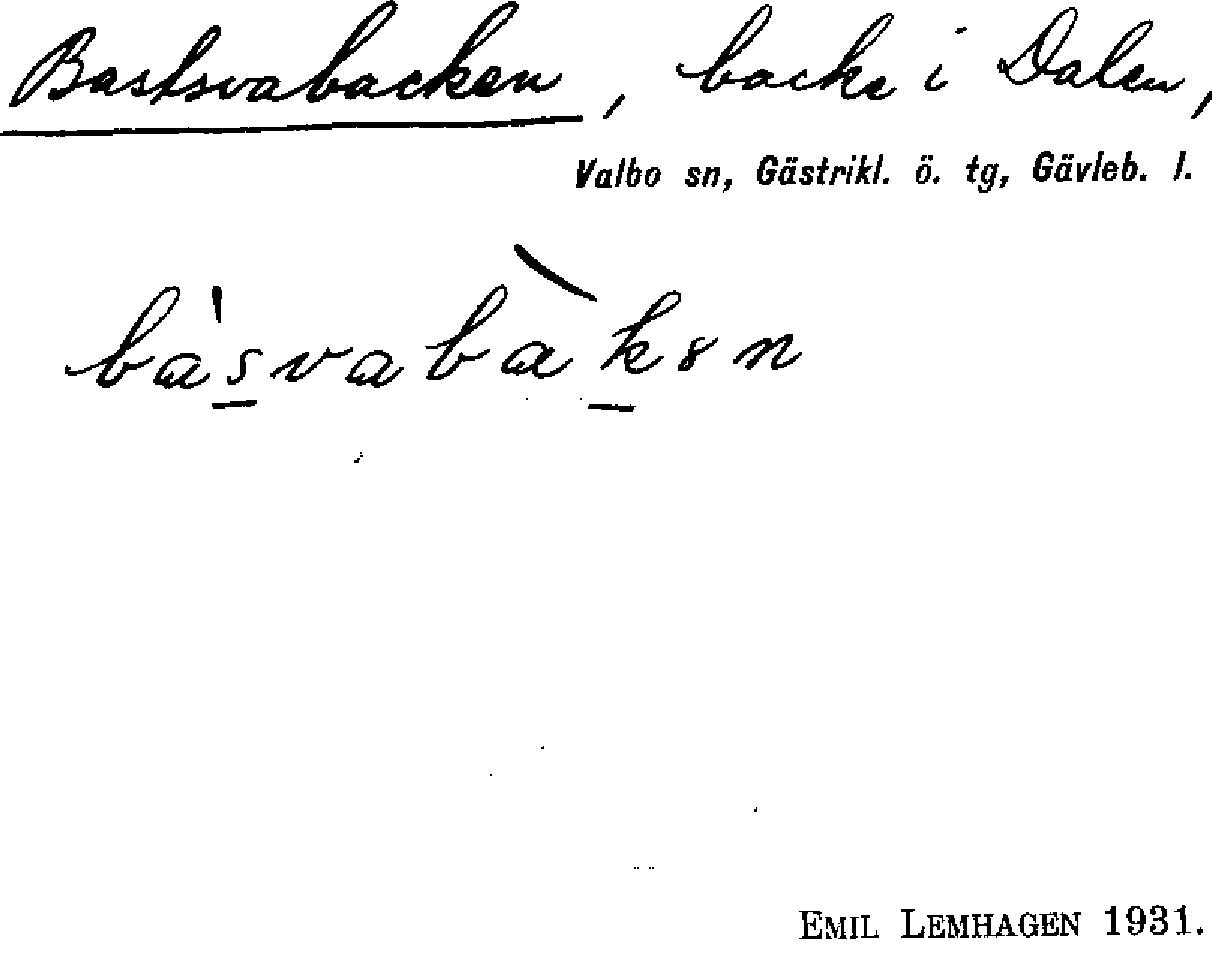 Bastsvabacken, backe i Dalen,
Valbo sn, Gästrikl. ö. tg, Gävleb. l.
ba'svabàksn
EMIL LEMHAGEN 1931.